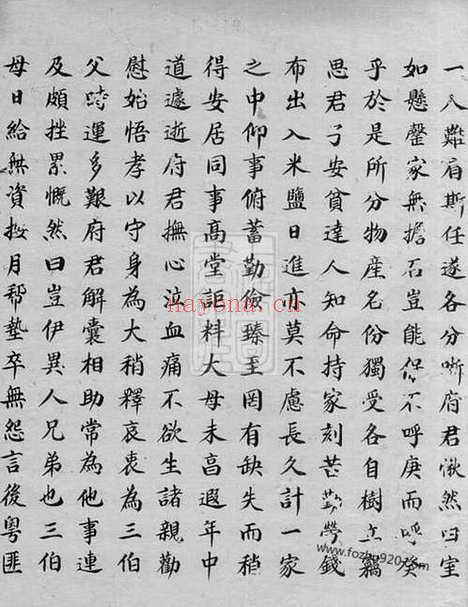 一人難肩斯任遂各分晰府君愀然曰室
如懸罄家無擔石豈能保不呼庚而呼癸
乎於是所分物產名份獨受各自樹立竊
思君子安貧達人知命持家刻苦勤勞錢
布出入米鹽日進亦莫不慮長久計一家
之中仰事俯蓄勤儉臻至罔有缺失而稍
得安居同事高堂詎料大母未亯遐年中
道遽逝府君撫心泣血痛不欲生諸親勸
慰始悟孝以守身為大稍釋哀衷為三伯
父時運多艱府君解囊相助常為他事連
及頗挫累慨然曰豈伊異人兄弟也三伯
母日給無資按月帮墊卒無怨言後粵匪
hayona.cn
www.fozhu920.com